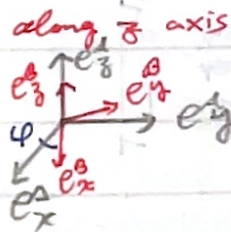 along z axis
e_z^A
e_z^B
e_y^B
e_y^A
φ
e_x^B
e_x^A